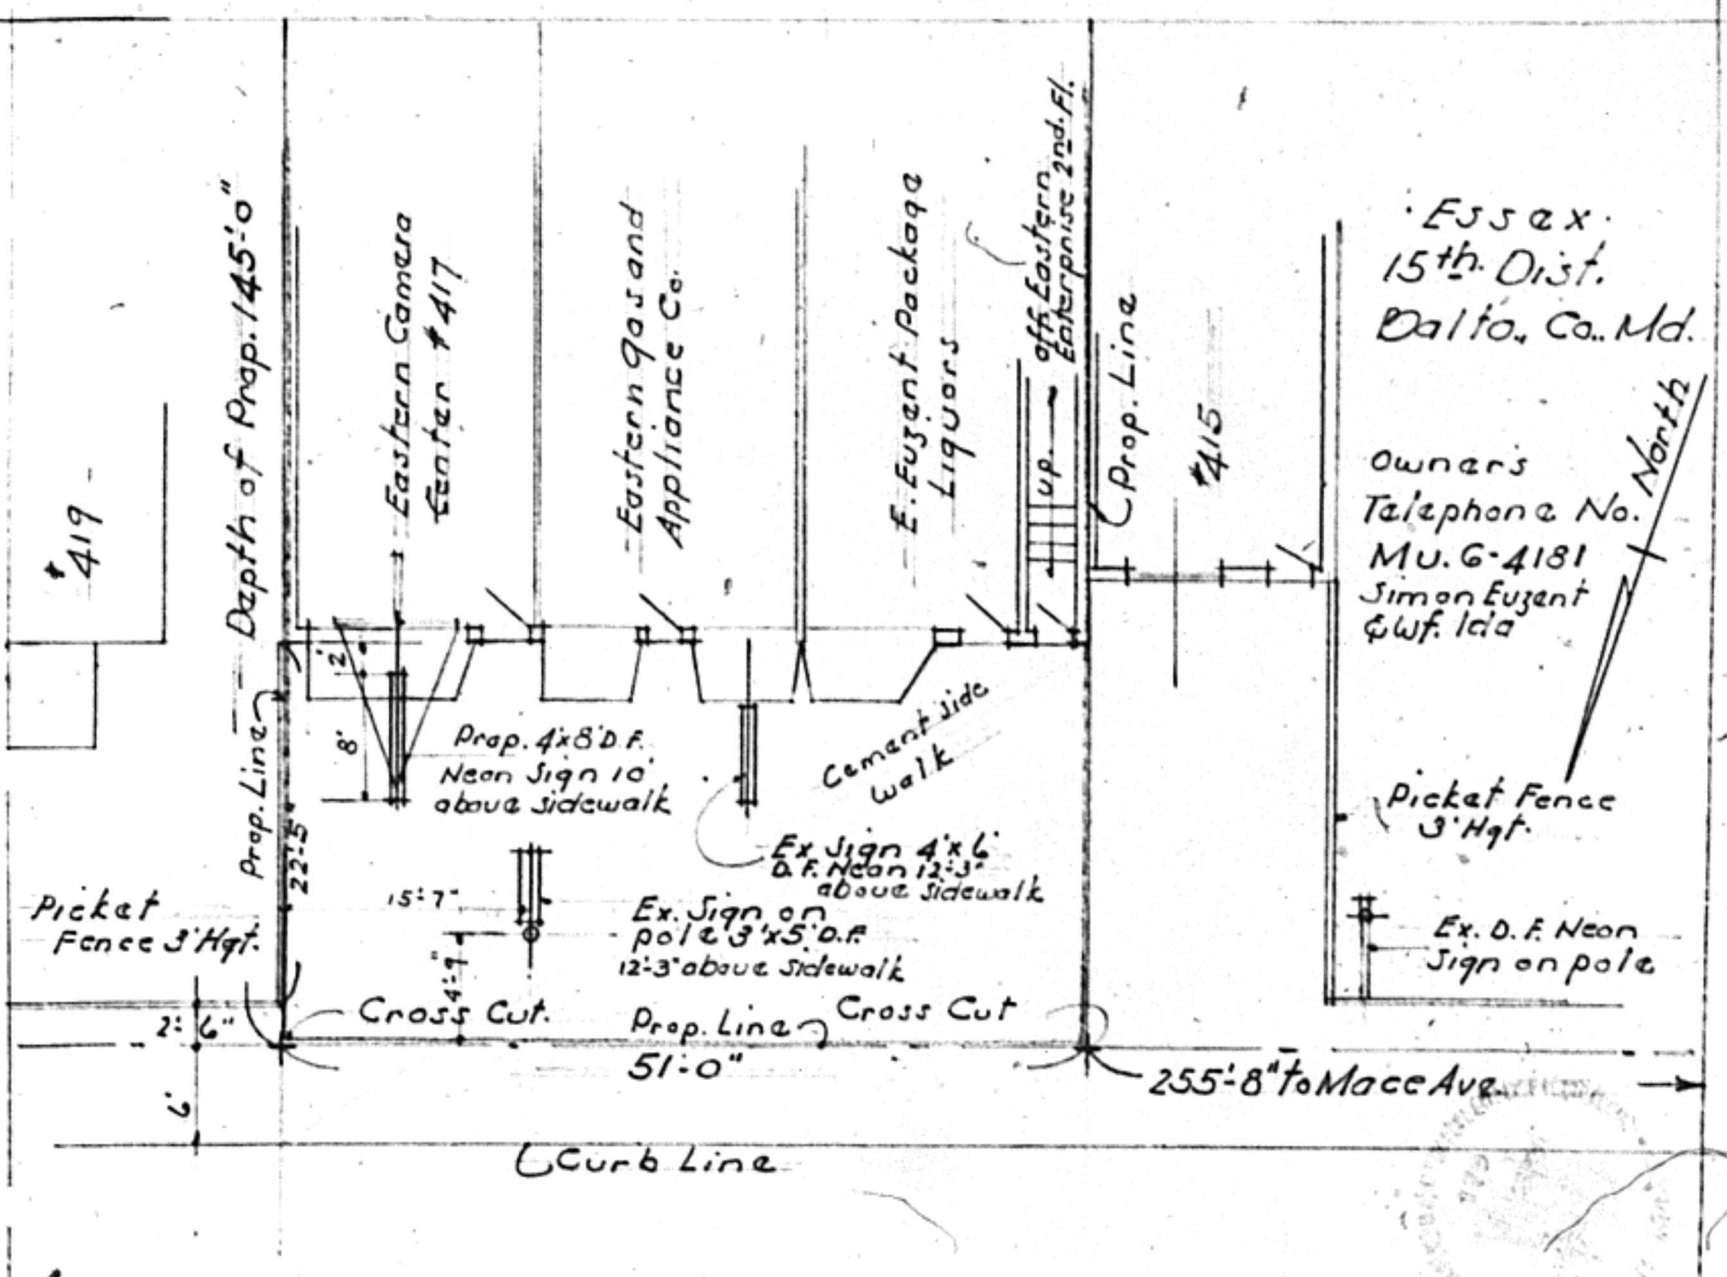 #419 -
Depth of Prop. 145'-0"
Eastern Camera
Center #417
Eastern Gas and
Appliance Co.
E. Euzent Package
Liquors
off. Eastern
Enterprise 2nd. Fl.
up.
Prop. Line
#415
· Essex ·
15th. Dist.
Balto., Co.. Md.
North
Owner's
Telephone No.
MU. 6-4181
Simon Euzent
& Wf. Ida
2'
8'
Prop. Line
22'-5"
Prop. 4'x8' D.F.
Neon Sign 10'
above sidewalk
Cement side
walk
Ex Sign 4'x6'
D.F. Neon 12'-3"
above sidewalk
Picket Fence
3' Hgt.
15'-7"
4'-9"
Ex. Sign on
pole 3'x5' D.F.
12'-3" above sidewalk
Ex. D. F. Neon
Sign on pole
Picket
Fence 3' Hgt.
2'-6"
6'
Cross Cut.
Prop. Line
Cross Cut
51'-0"
255'-8" to Mace Ave.
Curb Line